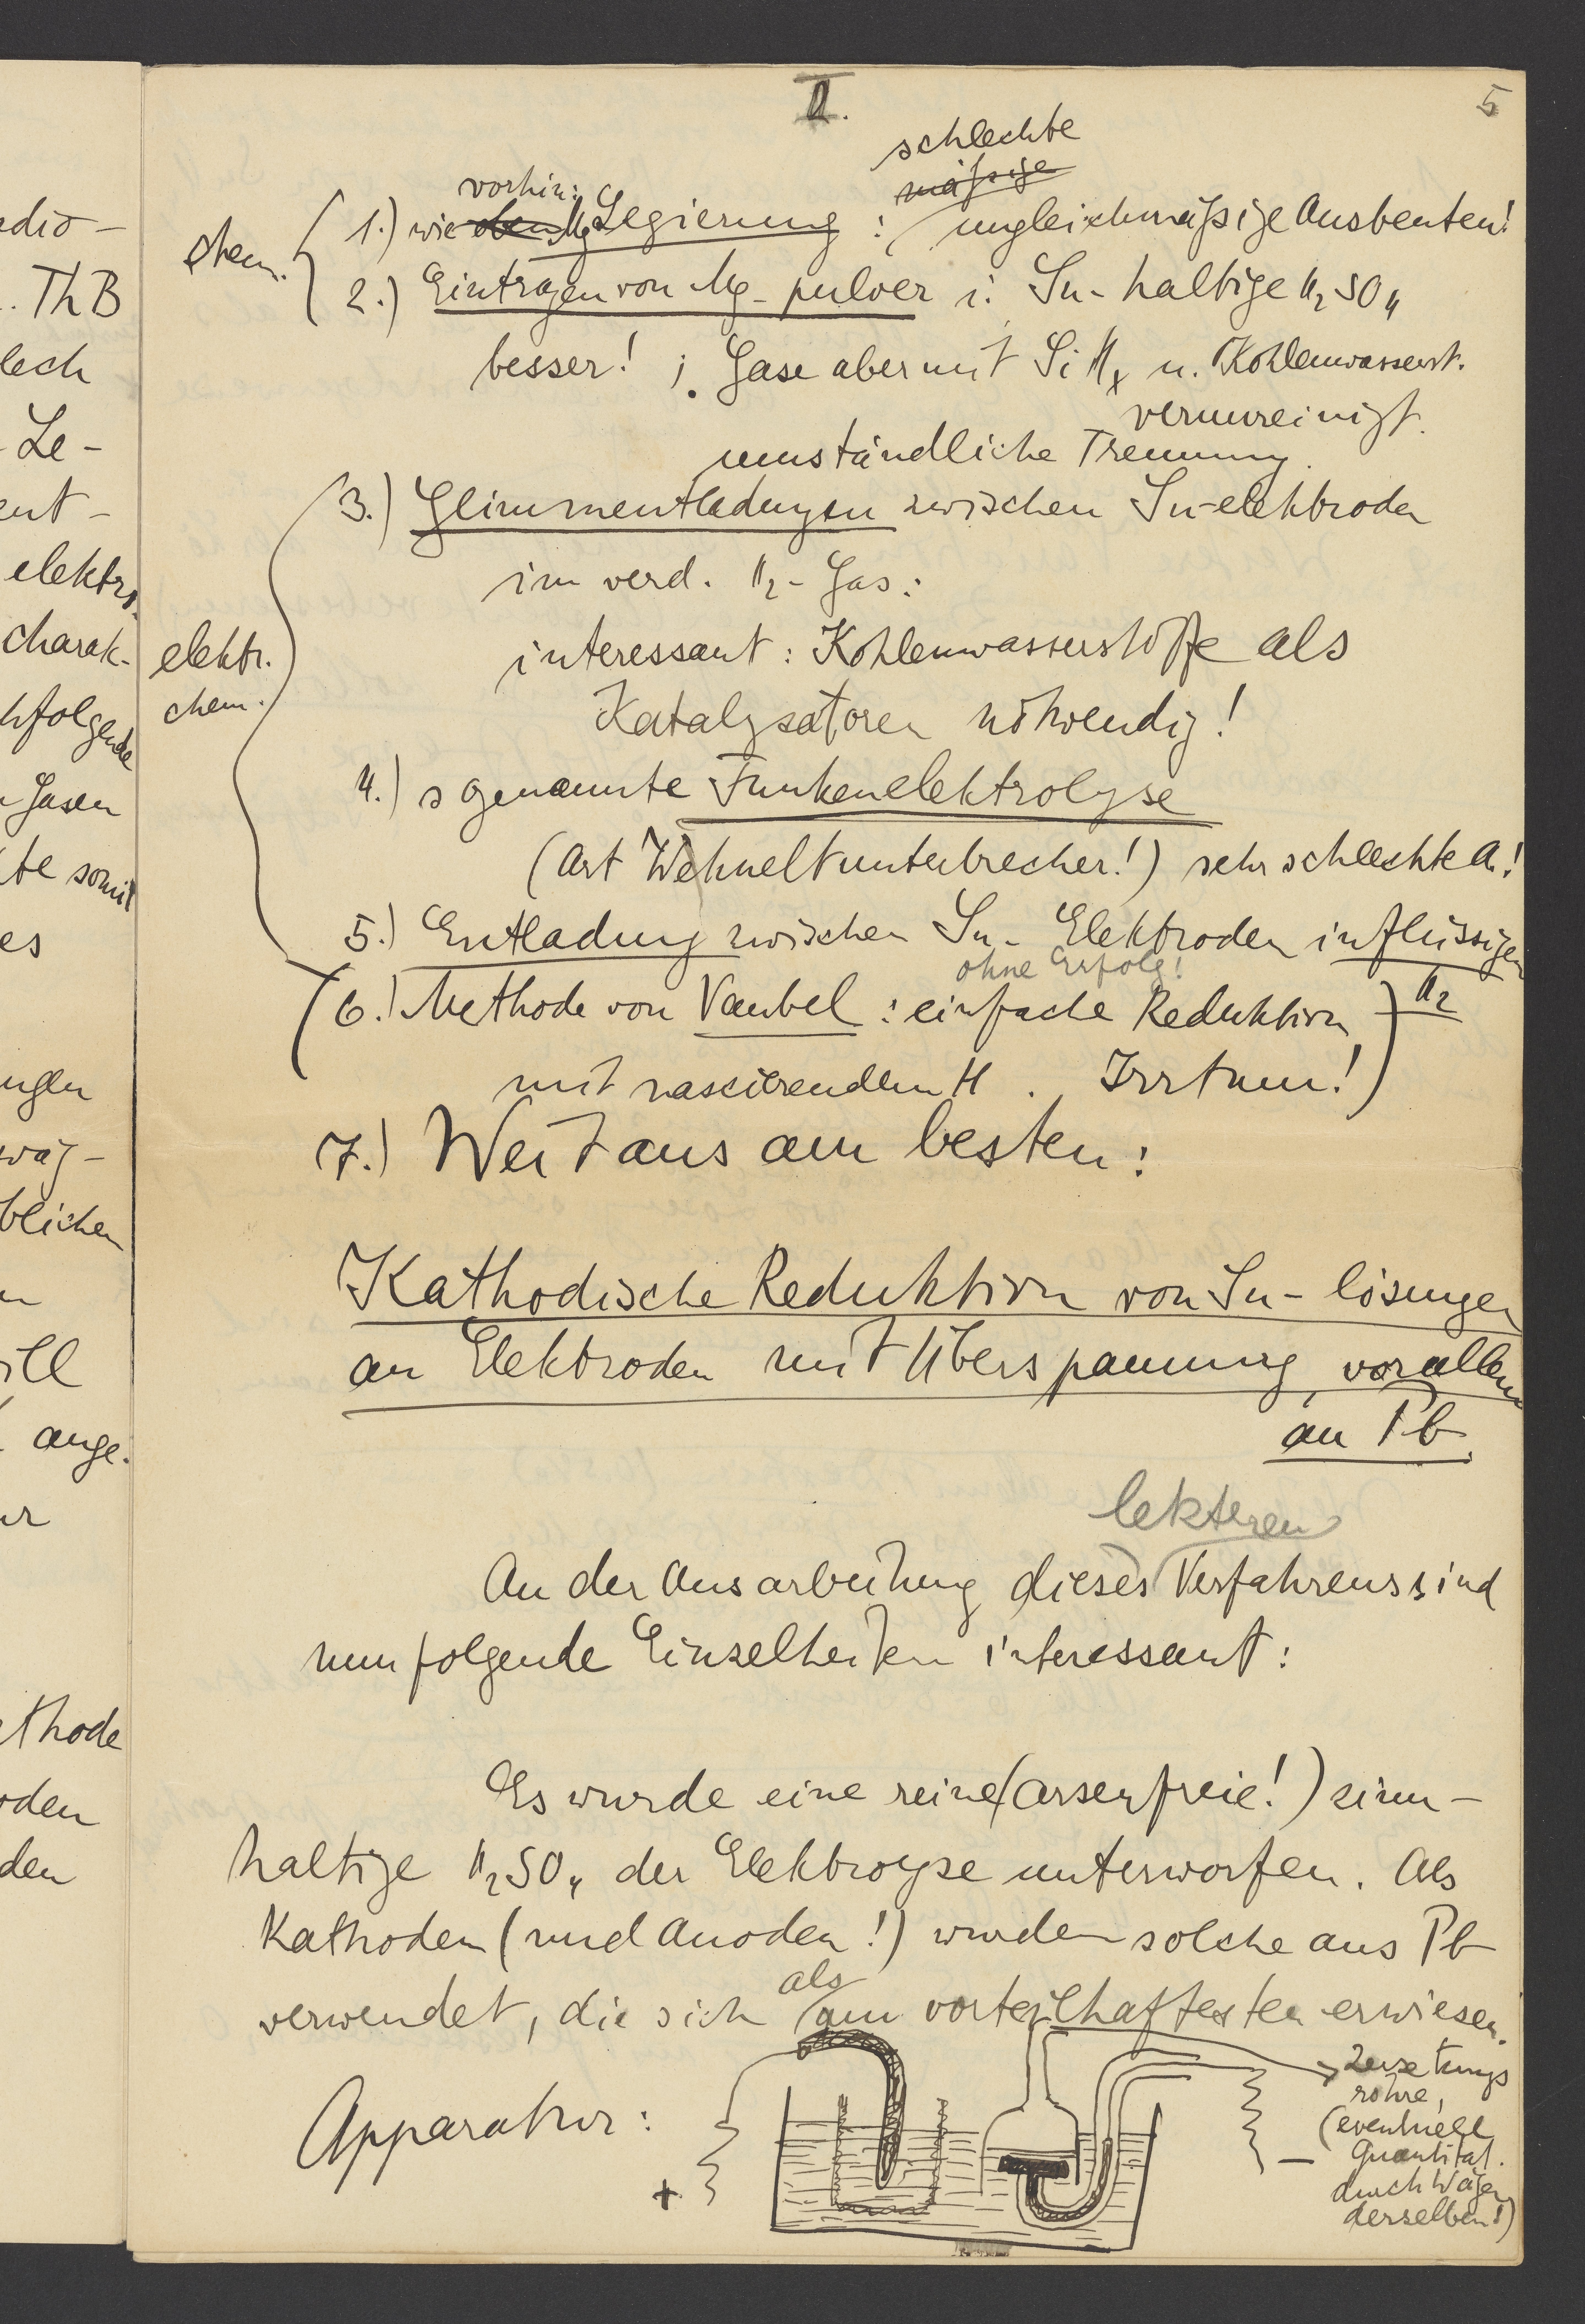 II.
5
schlechte
mäßige
vorhin:
chem. 1.) wie oben Mg Legierung : ungleichmäßige Ausbeuten!
2.) Eintragen von Mg-pulver i. Sn-haltige H2SO4
besser! ; Gase aber mit SiHx u. Kohlenwasserst.
verunreinigt.
umständliche Trennung.
3.) Glimmentladungen zwischen Sn-elektroden
im verd. H2-Gas:
interessant: Kohlenwasserstoffe als
elektr.
chem.
Katalysatoren nötwendig!
4.) sogenannte Funkenelektrolyse
(Art Wehneltunterbrecher!) sehr schlechte A.!
5.) Entladung zwischen Sn-Elektroden in flüssigen
H2
ohne Erfolg!
6.) Methode von Vaubel : einfache Reduktion
mit nascierendem H. Irrtum!)
7.) Weitaus am besten:
Kathodische Reduktion von Sn-lösungen
an Elektroden mit Überspannung, vor allem
an Pb.
letzteren
An der Ausarbeitung dieses Verfahrens sind
nun folgende Einzelheiten interessant:
Es wurde eine reine (arsenfreie!) zinn-
haltige H2SO4 der Elektroyse unterworfen. Als
Kathoden (und Anoden!) wurden solche aus Pb
als
verwendet, die sich am vorteilhaftesten erwiesen.
Apparatur:
+
−
Zersetzungs
röhre,
(eventuell
Quantitat.
durch Wägen
derselben!)
dio-
ThB
lech
Le-
ent-
elektro-
charak-
hfolgende
Gasen
te somit
es
ngen
wäg-
blichen
ill
ange-
thode
oden
den